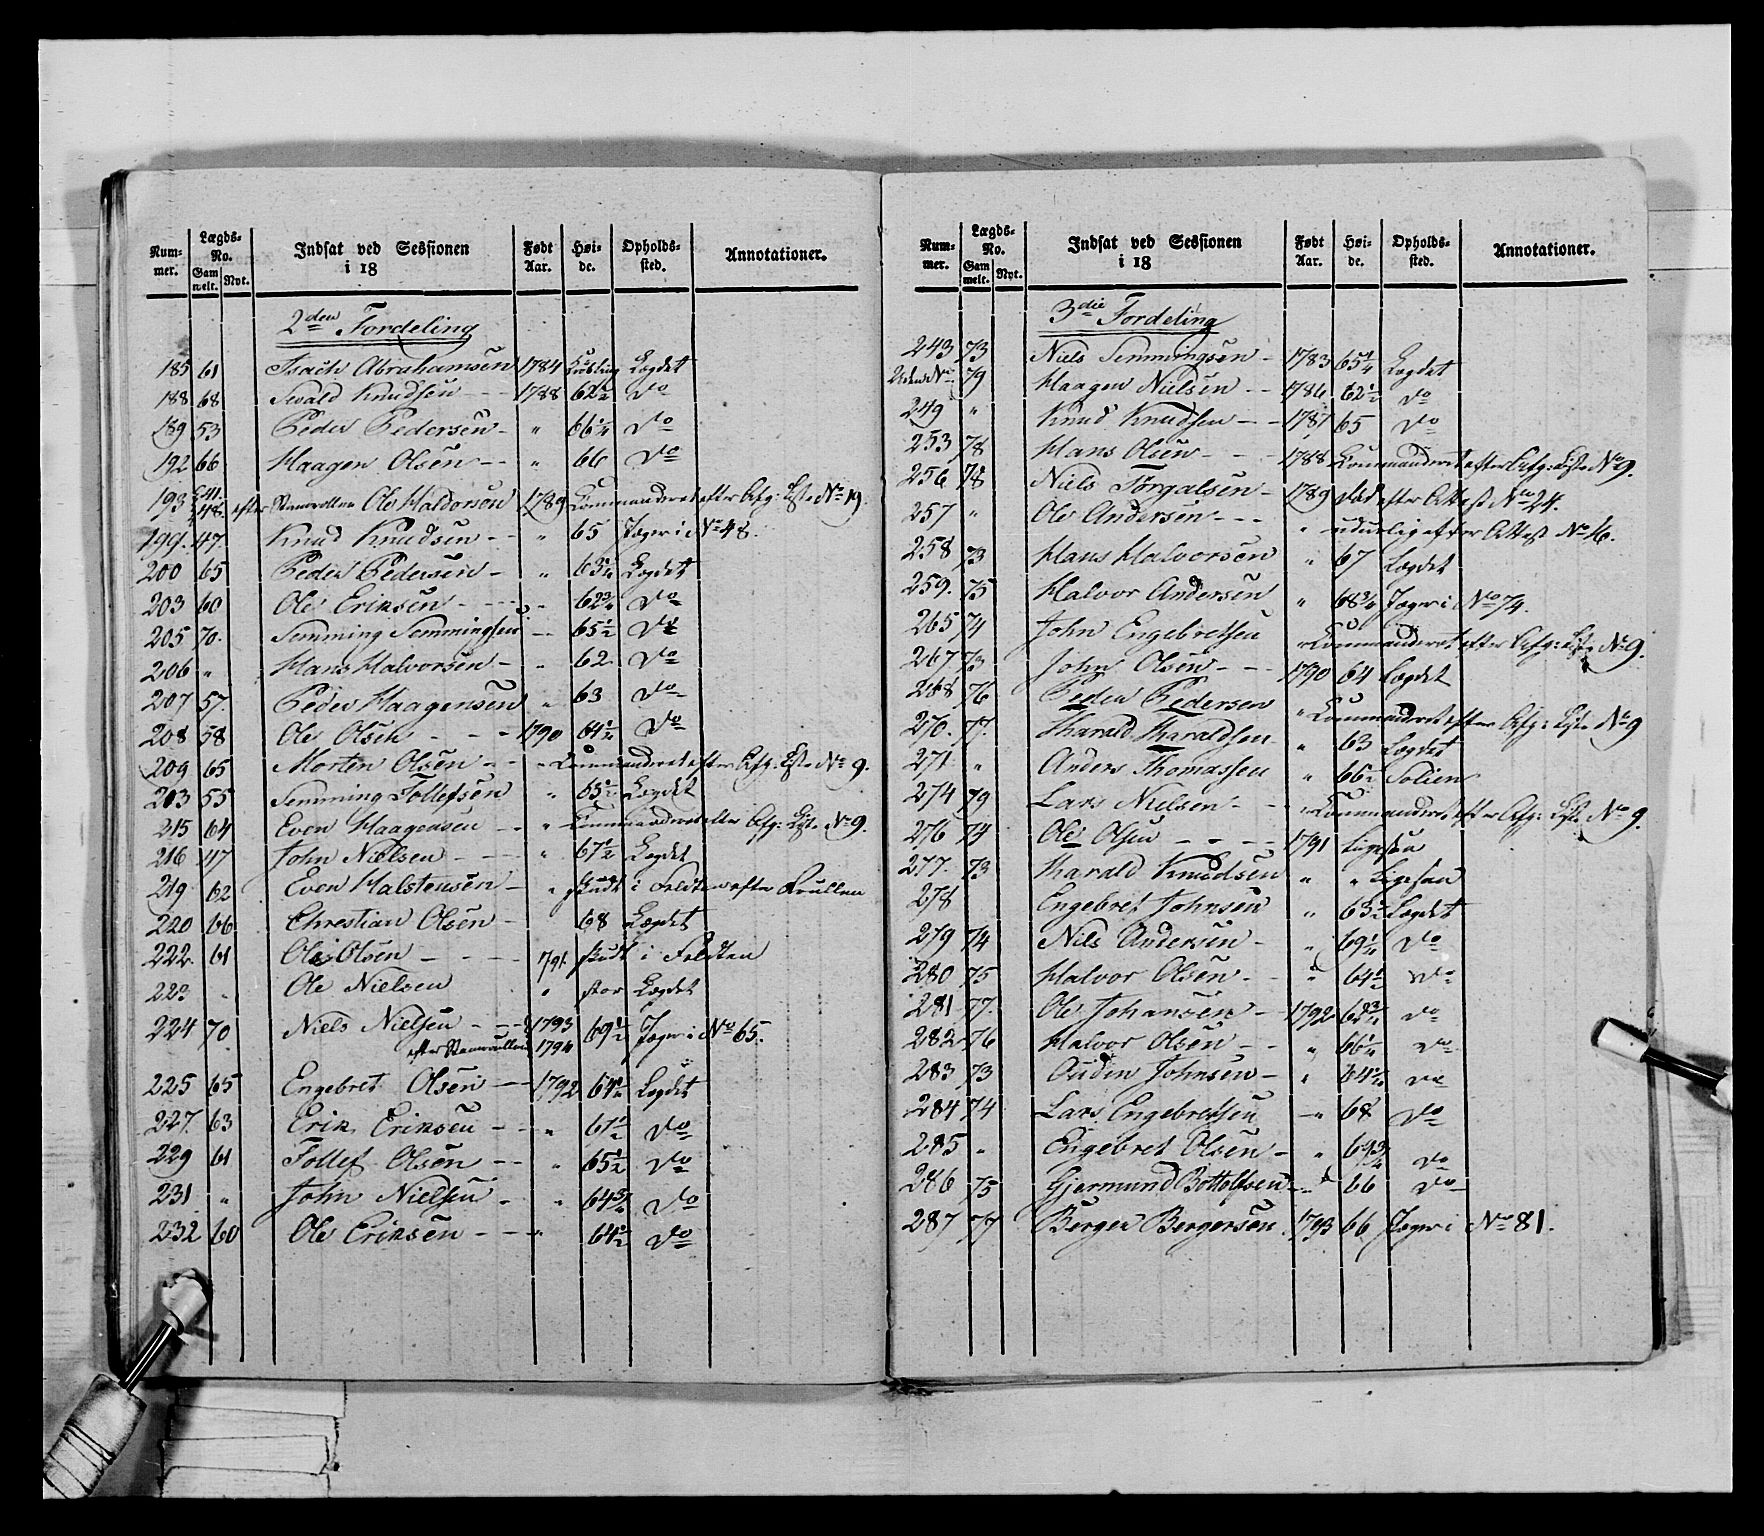 Num-mer. Lægds-No. Gam melt. Nyt. Indsat ved Sessionen i 18 Født Aar. Høi-de. Opholds-sted. Annotationer.
2den Fordeling
185 61 Isach Abrahamsen 1784 Lægdet
188 68 Knudsen 1788 62½ Do
189 53 Peder Pedersen " 66¼ Do
192 66 Haagen Olsen " 66 Do
193 41. 48. efter Stamrullen Ole Haldorsen 1789 Commanderet efter Afg: Liste No 19.
199. 47. Knud Knudsen " 65 Jæger i No 48.
200 65 Peder Pedersen " 63¼ Lægdet
203 60 Ole Eriksen " 62¾ Do
205 70. Semming Semmingsen " 65½ Do
206 " Hans Halvorsen " 62 Do
207 57. Peder Haagensen " 63 Do
208 58 Ole Olsen 1790 64¼ Do
209 65 Morten Olsen " Commanderet efter Afg: Liste No 9.
213 55 Semming Tollefsen " 65½ Lægdet
215 64 Even Haagensen " Commanderet efter Afg: Liste No 9.
216 47 John Nielsen " 67½ Lægdet
219 62 Even Halstensen " skudt i Feldten efter Rullen
220 66 Christian Olsen 68 Lægdet
222. 61 Ole Olsen 791 skudt i Feldten
223 " Ole Nielsen " stor Lægdet
224 70. Niels Nielsen 1793 69½ Jæger i No 65.
efter Stamrullen 1794
225 65 Engebret Olsen 1792 64¼ Lægdet
227. 63 Erik Eriksen " 67½ Do
229 61 Tollef Olsen " 65½ Do
231 " John Nielsen " 64¾ Do
232 60 Ole Eriksen " 64½ Do
Num-mer. Lægds-No. Gam melt. Nyt. Indsat ved Sessionen i 18 Født Aar. Høi-de. Opholds-sted. Annotationer.
3die Fordeling
243 73 Niels Semmingsen 1783 65¼ Lægdet
Uden No 79 Haagen Nielsen 1786 62½ Do
249 " Knud Knudsen 1787 65 Do
253 78 Hans Olsen 1788 Commanderet efter Afg: Liste No 9.
256 78 Niels Torgalsen 1789 død efter Attest No 24.
257 " Ole Andersen " udueligt efter Attest No 16.
258 73 Hans Halvorsen " 67 Lægdet
259. 75 Halvor Andersen " 68¾ Jæger i No 74.
265 74 John Engebretsen " Commanderet efter Afg: Liste No 9.
267 73 John Olsen 1790 64 Lægdet
268 76 Peder Pedersen " Commanderet efter Afg: Liste No 9
270. 77. Harald Haraldsen " 63 Lægdet
271 " Anders Thomassen " 66½ Solien
274 79 Lars Nielsen " Commanderet efter Afg: Liste No 9.
276 74 Ole Olsen 1791 Ligesaa
277. 73 Harald Knudsen " " Ligesaa
278 Engebret Johnsen " 63½ Lægdet
279 74 Nils Andersen " 69¼ Do
280 75 Halvor Olsen " 64½ Do
281 77. Ole Johansen 1792 62¾ Do
282 76 Halvor Olsen " 66¼ Do
283 73 Ouden Johnsen " 64¼ Do
284 74 Lars Engebretsen " 68 Do
285 " Engebret Olsen " 69¾ Do
286 75 Gjermund Bottolfsen " 66 Do
287 77 Berger Bergersen 1793 66 Jæger i No 81.